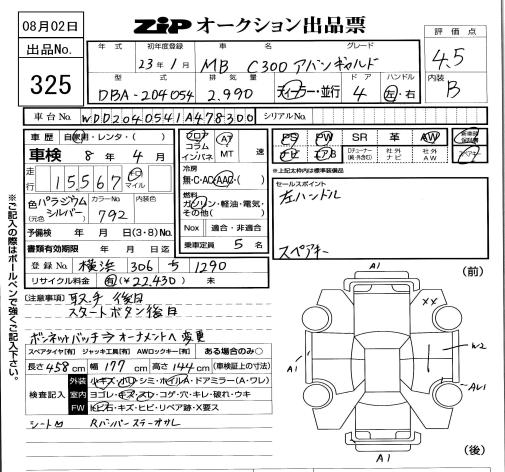 08月02日
ZIP オークション出品票
出品No.
325
評価点
4.5
内装
B
年式 初年度登録 車名 グレード
23年1月 MB C300 アバンギャルド
型式 排気量 ドア ハンドル
DBA-204054 2.990 ディーラー・並行 4 左・右
車台No. WDD2040541A478300 シリアルNo.
車歴 自家用・レンタ・( )
車検 8年4月
走行 15567 キロ マイル
色(元色) パラジウムシルバー カラーNo. 792 内装色
予備検 年 月 日(3・8)No.
書類有効期限 年 月 日
フロア コラム インパネ AT MT 速
冷房
無・C・AC・AAC・( )
燃料
ガソリン・軽油・電気・その他( )
Nox 適合・非適合
乗車定員 5名
PS PW SR 革 AW 新車時保証書
ナビ エアB TVチューナー(純・外含む) 社外ナビ 社外AW スペアキー
※上記太枠内は標準装備品
セールスポイント
左ハンドル
スペアキー
登録No. 横浜 306 ち 1290
リサイクル料金 有(¥22.430) 未
[注意事項] 取手 後日
スタートボタン後日
ボンネットバッチ⇒オーナメントへ変更
スペアタイヤ[有] ジャッキ工具[有] AWロックキー[有] ある場合のみ○
長さ458cm 幅177cm 高さ144cm (車検証上の寸法)
検査記入
外装 小キズ・小凹・シミ・ホイルA・ドアミラー(A・ワレ)
室内 ヨゴレ・キズ・スレ・コゲ・穴・キレ・破れ・ウキ
FW 飛石・キズ・ヒビ・リペア跡・X要ス
シート凹 Rバンパーステーオサレ
※ご記入の際はボールペンで強くご記入下さい。
A1
(前)
XX
A1
W2
AW1
A1
(後)